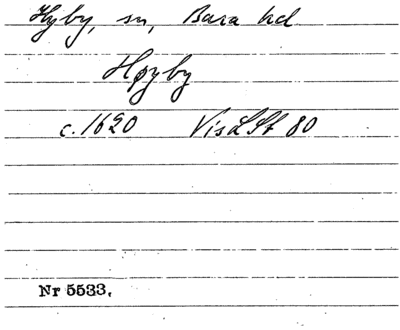 Hyby, sn, Bara hd
Høyby
c. 1620 VisLSt 80
Nr 5533.